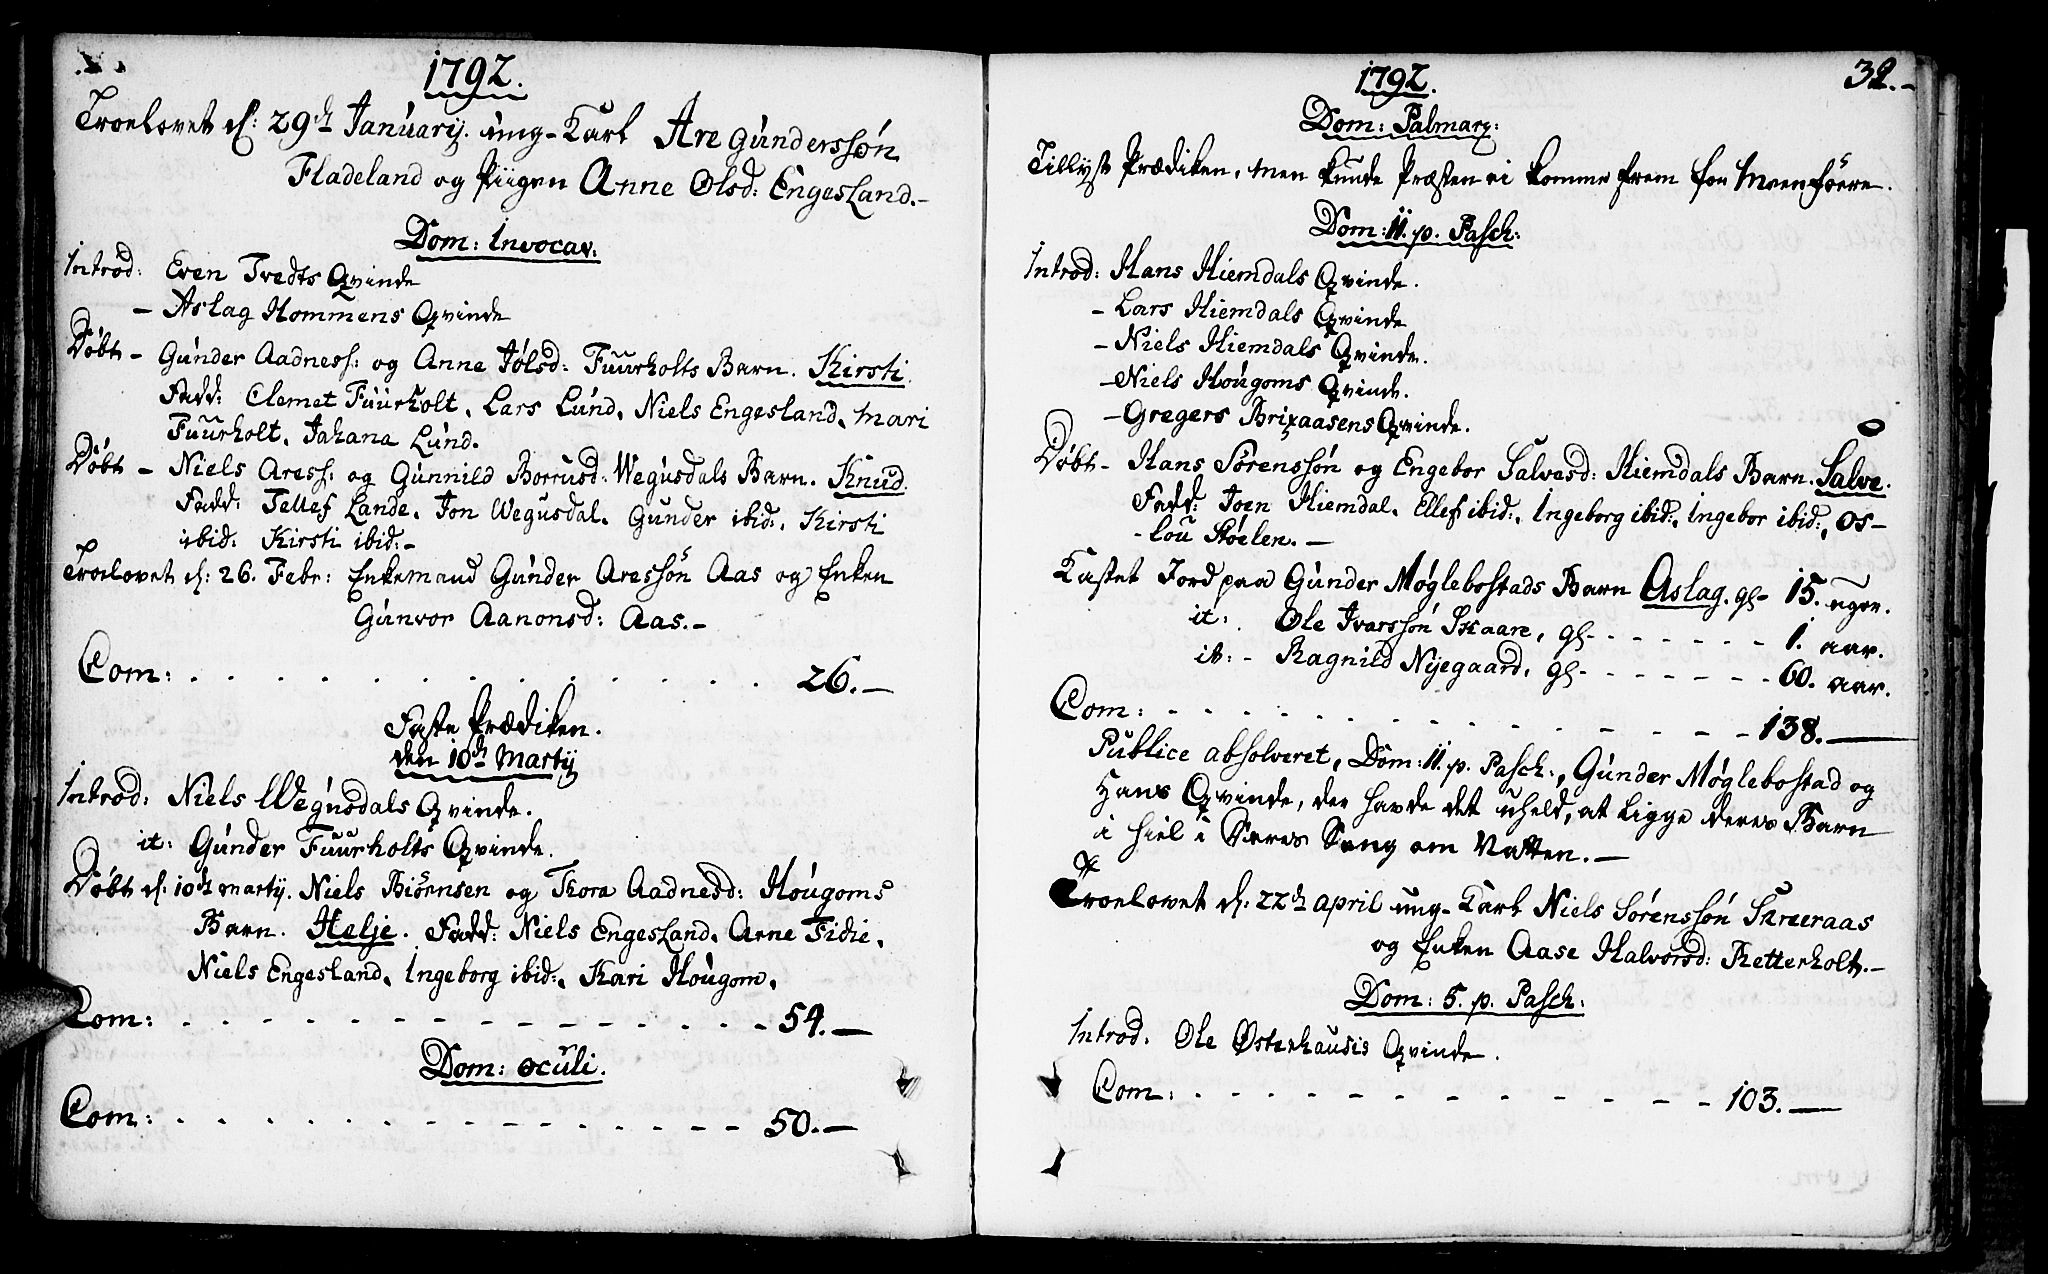 1792.
Troelovet d: 29de Januarij. ung-Karl Are Gunderssøn
Fladeland og Piigen Anne Olsd: Engesland.-
Dom: Invocav.
Introd: Even Tvedts Qvinde
- Aslag Hommens Qvinde
Døbt - Gunder Aadness: og Anne Jølsd: Fuurholts Barn. Kirsti.
Fadd: Clemet Fuurholt, Lars Lund, Niels Engesland, Mari
Fuurholt, Johana Lund.
Døbt - Niels Aress: og Gunnild Borrusd: Wegusdals Barn. Knud.
Fadd: Tellef Lande, Jon Wegusdal, Gunder ibid:, Kirsti
ibid: Kirsti ibid:-
Troelovet d: 26. Febr: Enkemand Gunder Aressøn Aas og Enken
Gunvor Aanonsd: Aas.-
Com: 26.-
Faste Prædiken.
den 10de Martij
Introd: Niels Wegusdals Qvinde.
it: Gunder Fuurholts Qvinde.
Døbt d: 10de Martij. Niels Biörnsen og Thora Aadnesd: Hougoms
Barn. Helje. Fadd: Niels Engesland, Arne Fidie,
Niels Engesland, Ingeborg ibid:, Kari Hougom.
Com: 54.-
Dom: Oculi.
Com: 50.-
1792. 32.-
Dom: Palmarz:
Tillyst Prædiken, men kunde Præsten ei komme frem for Meenföere.
Dom: II. p. Pasch:
Introd: Hans Hiemdals Qvinde.
- Lars Hiemdals Qvinde
- Niels Hiemdals Qvinde.
- Niels Hougoms Qvinde.
- Gregers Brixaasens Qvinde.
Døbt - Hans Sörenssøn og Engebor Salvesd: Hiemdals Barn. Salve.
Fadd: Joen Hiemdal, Ellef ibid:, Ingeborg ibid:, Ingebor ibid:, Os-
-lou Støelen.-
Kastet Jord paa Gunder Møglebostads Barn Aslag. gl- 15. uger.
it: Ole Ivarssøn Skaare, gl- 1. aar.
it: - Ragnild Nyegaard, gl- 60. aar.
Com: 138.-
Publice absolveret, Dom: II. p. Pasch:, Gunder Møglebostad og
Hans Qvinde, der havde det uheld, at ligge deres Barn
i hiel i Deres Seng om Natten.-
Troelovet d: 22de April ung-Karl Niels Sörenssøn Skreeraas
og Enken Aase Halvorsd: Retterholt.-
Dom: 5. p. Pasch:
Introd. Ole Østerhausis Qvinde.
Com: 103.-